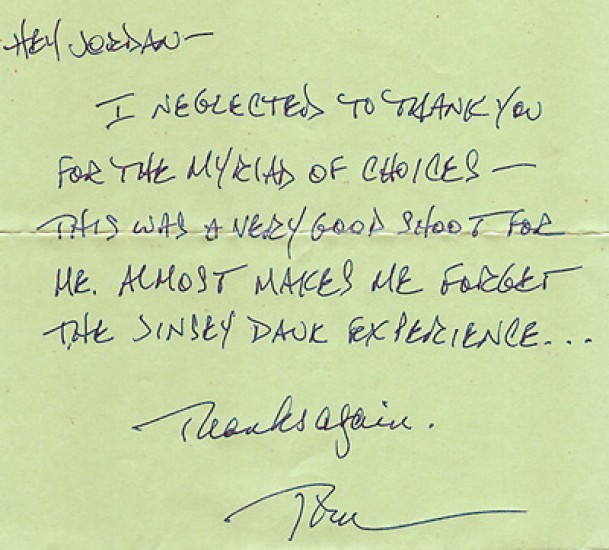 HEY JORDAN—
I NEGLECTED TO THANK YOU
FOR THE MYRIAD OF CHOICES —
THIS WAS A VERY GOOD SHOOT FOR
ME. ALMOST MAKES ME FORGET
THE JINSEY DAUK EXPERIENCE...
Thanks again.
Tom